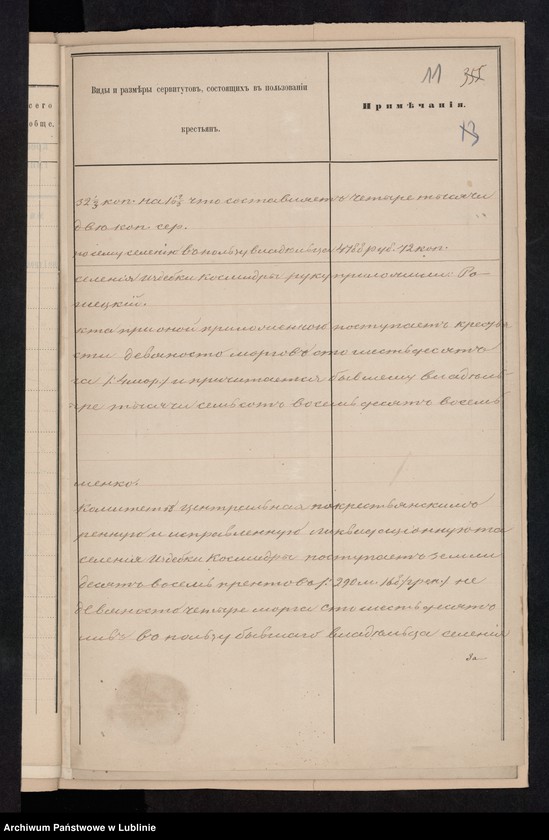 11 351
Виды и размѣры сервитутовъ, состоящихъ въ пользованіи
крестьянъ.
Примѣчанія.
13
сего
обще.
коп. на что составляетъ четыре тысячи
двѣ коп. сер.
по сему селенію въ пользу владѣльца 4788 руб. 72 коп.
селенія Издебки Космидры руку приложили: Ро-
шецкій.
акта при оной приложеннаго поступаетъ крестья
сти девяносто морговъ сто шестьдесятъ
и причитается бывшему владѣль-
ре тысячи семьсотъ восемьдесятъ восемь
менко.
Комитетъ Центральная по крестьянскимъ
ренную и исправленную ликвидаціонную та
селенія Издебки Космидры поступаетъ земли
десятъ восемь прентовъ не
девяносто четыре морга сто шестьдесятъ
въ пользу бывшаго владѣльца селенія
За
Archiwum Państwowe w Lublinie